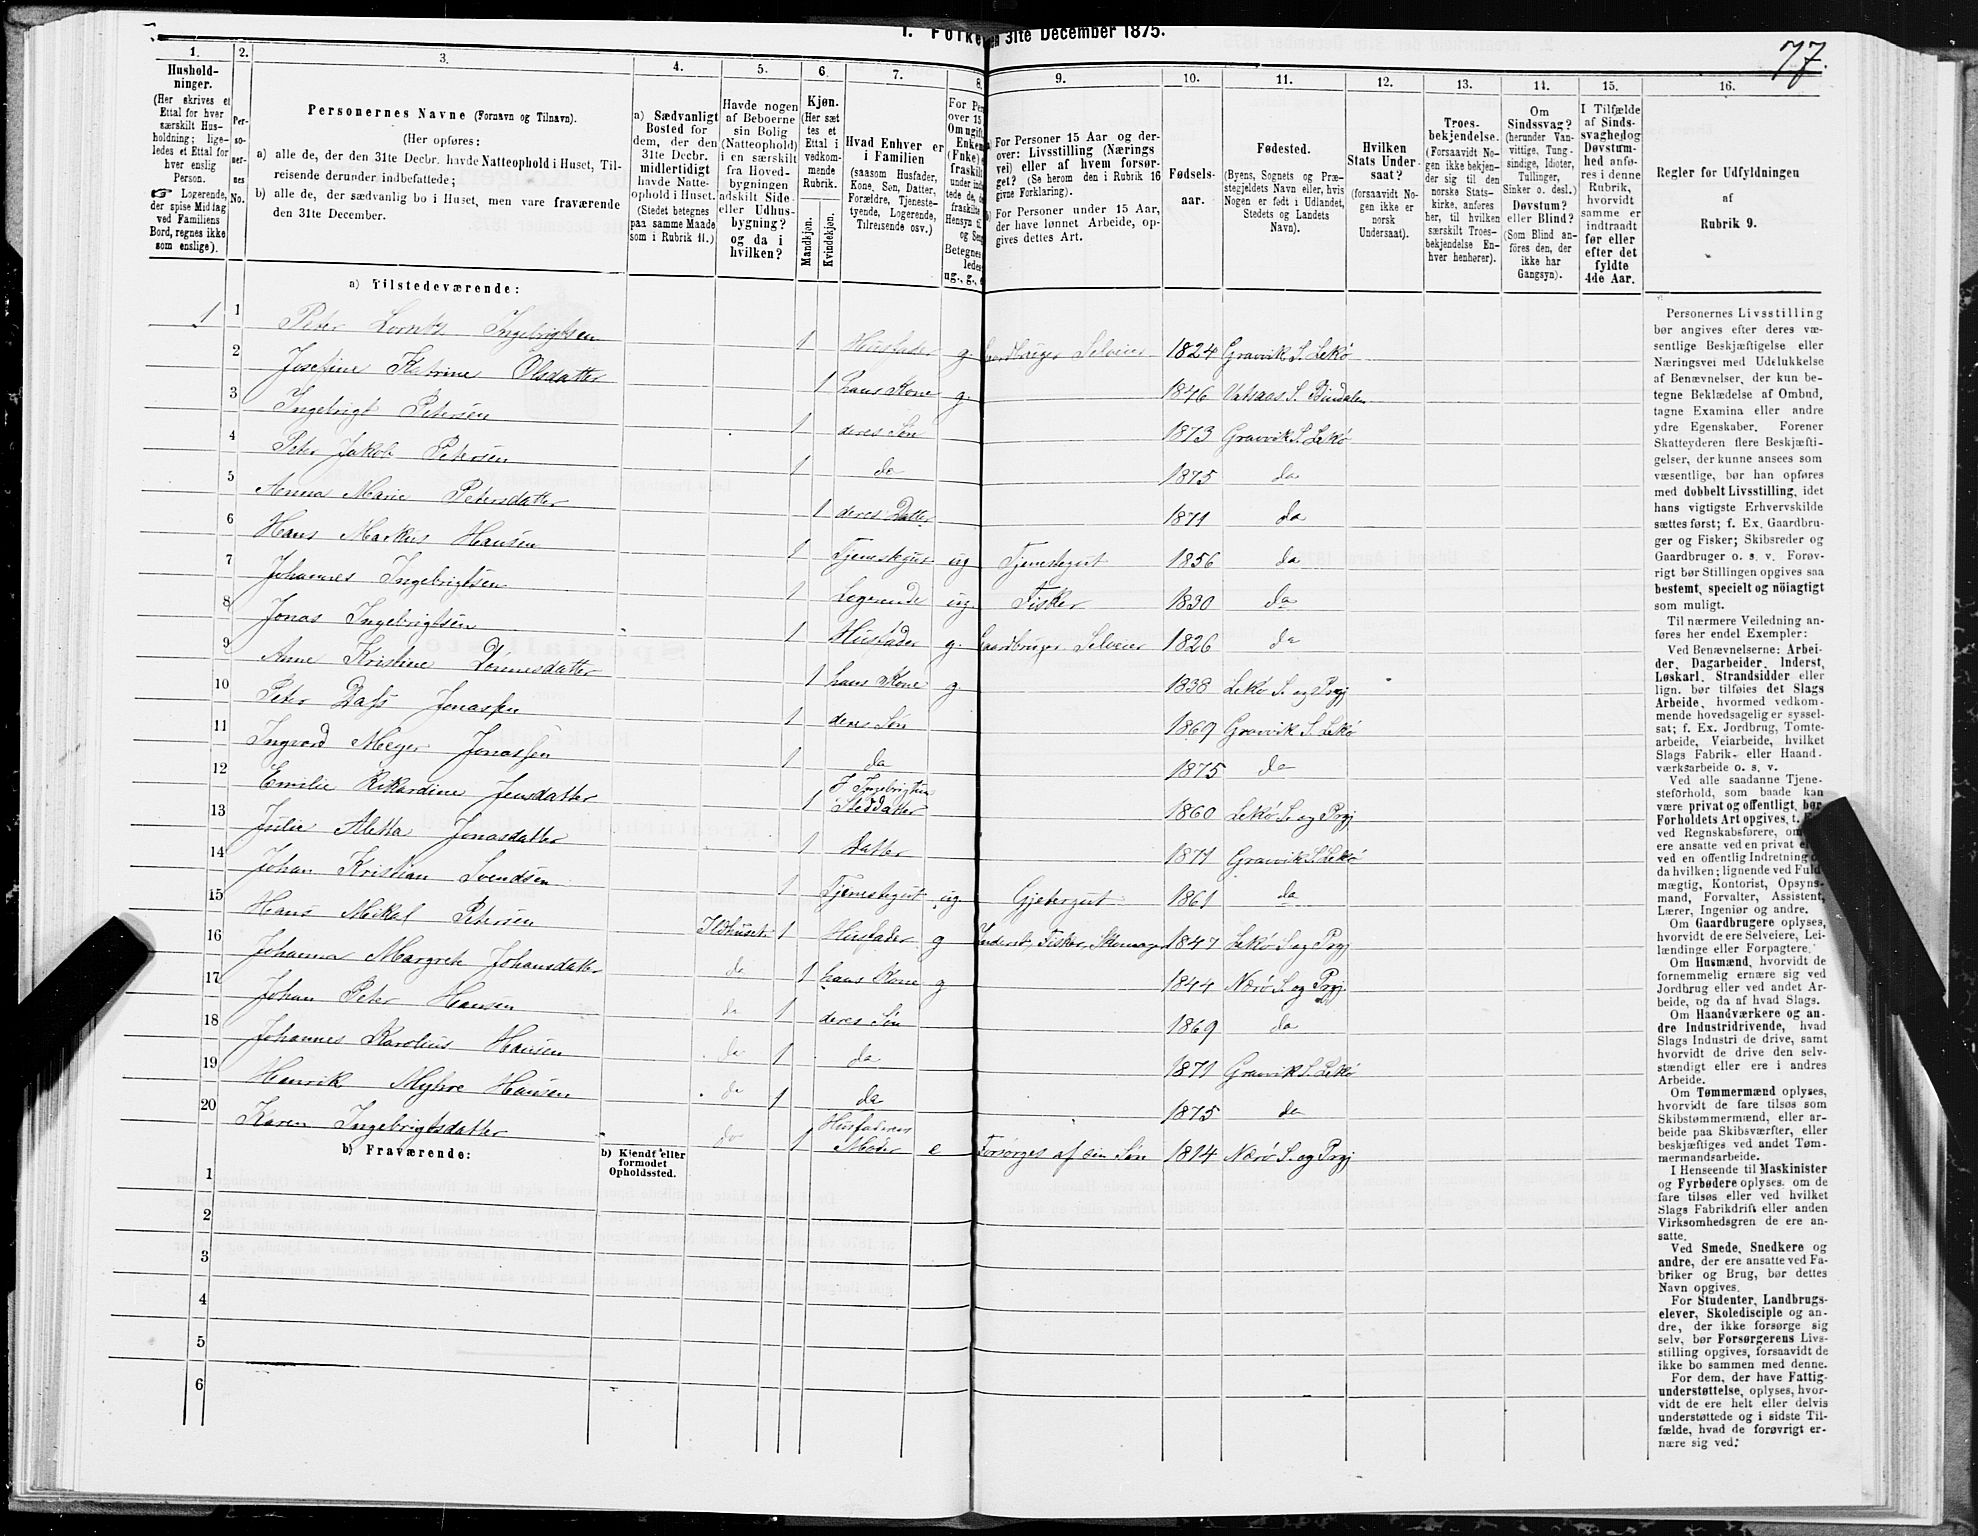 1. Folke en 31te December 1875.
77.
1. 2. 3. 4. 5. 6. 7. 8. 9. 10. 11. 12. 13. 14. 15. 16.
Hushold-
ninger.
(Her skrives et
Ettal for hver
særskilt Hus-
holdning; lige-
ledes et Ettal for
hver enslig
Person.
☞ Logerende,
der spise Middag
ved Familiens
Bord, regnes ikke
som enslige).
Per-
so-
ner-
nes
No.
Personernes Navne (Fornavn og Tilnavn).
(Her opføres:
a) alle de, der den 31te Decbr. havde Natteophold i Huset, Til-
reisende derunder indbefattede;
b) alle de, der sædvanlig bo i Huset, men vare fraværende
den 31te December.
a) Sædvanligt
Bosted for
dem, der den
31te Decbr.
midlertidigt
havde Natte-
ophold i Huset.
(Stedet betegnes
paa samme Maade
som i Rubrik 11.)
Havde nogen
af Beboerne
sin Bolig
(Natteophold)
i en særskilt
fra Hoved-
bygningen
adskilt Side-
eller Udhus-
bygning?
og da i
hvilken?
Kjøn.
(Her sæt
tes et
Ettal i
vedkom-
mende
Rubrik.
Mandkjøn.
Kvindekjøn.
Hvad Enhver er
i Familien
(saasom Husfader,
Kone, Søn, Datter,
Forældre, Tjeneste-
tyende, Logerende,
Tilreisende osv.)
For Per
over 15
Om ugift
Enkem
(Fnke) e
fraskilt
ug., g., e
a) For Personer 15 Aar og der-
over: Livsstilling (Nærings
vei) eller af hvem forsør-
get? (Se herom den i Rubrik 16
givne Forklaring).
b) For Personer under 15 Aar,
der have lønnet Arbeide, op-
gives dettes Art.
Fødsels-
aar.
Fødested.
(Byens, Sognets og Præ-
stegjeldets Navn eller, hvis
Nogen er født i Udlandet,
Stedets og Landets
Navn).
Hvilken
Stats Under-
saat?
(forsaavidt No-
gen ikke er
norsk
Undersaat).
Troes-
bekjendelse.
(Forsaavidt No-
gen ikke bekjen-
der sig til den
norske Stats-
kirke, anføres
her, til hvilken
særskilt Troes-
bekjendelse En-
hver henhører).
Om
Sindssvag?
(herunder Van-
vittige, Tung-
sindige, Idioter,
Tullinger,
Sinker o. desl.)
Døvstum?
eller Blind?
(Som Blind an-
føres den, der
ikke har
Gangsyn).
I Tilfælde
af Sinds-
svaghed og
Døvstum-
hed anfø-
res i denne
Rubrik,
hvorvidt
samme er
indtraadt
før eller
efter det
fyldte
4de Aar.
Regler for Udfyldningen
af
Rubrik 9.
a) Tilstedeværende:
1 1 Peter Lornts Ingebrigtsen 1 Husfader g. Gaardbruger Selveier 1824 Gravvik S. Lekø
2 Josefine Katrine Olsdatter 1 hans Kone g. 1846 Vatsaas S. Bindalen
3 Ingebrigt Petersen 1 deres Søn 1873 Gravvik S. Lekø
4 Peter Jakob Petersen 1 do 1875 do
5 Anna Marie Petersdatter 1 deres Datter 1871 do
6 Hans Markus Hansen 1 Tjenestegut ug Tjenestegut 1856 do
7 Johannes Ingebrigtsen 1 Logerende ug. Fisker 1830 do
8 Jonas Ingebrigtsen 1 Husfader g. Gaardbruger Selveier 1826 do
9 Anne Kristine Dønnesdatter 1 hans Kone g 1838 Lekø S. og Prgj
10 Peter Dass Jonassen 1 deres Søn 1869 Gravvik S. Lekø
11 Ingvard Meyer Jonassen 1 do 1875 do
12 Emilie Rikardine Jensdatter 1 J Ingebrigtsen Steddatter 1860 Lekø S. og Prgj
13 Julie Aletta Jonasdatter 1 Datter 1871 Gravvik S. Lekø
14 Johan Kristian Svendsen 1 Tjenestegut ug Gjetergut 1861 do
15 Hans Mikal Petersen Ildhuset 1 Husfader g Inderst, Fisker, Skomager 1847 Lekø S. og Prgj
16 Johanna Margrete Johansdatter do 1 hans Kone g 1844 Nærø S. og Prgj.
17 Johan Peter Hansen do 1 deres Søn 1869 do
18 Johannes Karolius Hansen do 1 do 1871 Gravvik S. Lekø
19 Henrik Myhre Hansen do 1 do 1875 do
20 Karen Ingebrigtsdatter do 1 Husfaderens Moder e Forsørges af sin Søn 1814 Nærø S. og Prgj
b) Fraværende:
b) Kjendt eller
formodet
Opholdssted.
1
2
3
4
5
6
Personernes Livsstilling
bør angives efter deres væ-
sentlige Beskjæftigelse eller
Næringsvei med Udelukkelse
af Benævnelser, der kun be-
tegne Beklædelse af Ombud,
tagne Examina eller andre
ydre Egenskaber. Forener
Skatteyderen flere Beskjæfti-
gelser, der kunne ansees som
væsentlige, bør han opføres
med dobbelt Livsstilling, idet
hans vigtigste Erhvervskilde
sættes først; f. Ex. Gaardbru-
ger og Fisker; Skibsreder og
Gaardbruger o. s. v. Forøv-
rigt bør Stillingen opgives saa
bestemt, specielt og nöiagtigt
som muligt.
Til nærmere Veiledning an-
føres her endel Exempler:
Ved Benævnelserne: Arbei-
der, Dagarbeider, Inderst,
Løskarl, Strandsidder eller
lign. bør tilføies det Slags
Arbeide, hvormed vedkom-
mende hovedsagelig er syssel-
sat; f. Ex. Jordbrug, Tomte-
arbeide, Veiarbeide, hvilket
Slags Fabrik- eller Haand-
værksarbeide o. s. v.
Ved alle saadanne Tjene-
steforhold, som baade kan
være privat og offentligt, bør
Forholdets Art opgives, t.
ved Regnskabsførere, om
ere ansatte ved en privat e
ved en offentlig Indretning o
da hvilken; lignende ved Fuld
mægtig, Kontorist, Opsyns-
mand, Forvalter, Assistent,
Lærer, Ingeniør og andre.
Om Gaardbrugere oplyses,
hvorvidt de ere Selveiere, Lei-
lændinge eller Forpagtere.
Om Husmænd, hvorvidt de
fornemmelig ernære sig ved
Jordbrug eller ved andet Ar-
beide, og da af hvad Slags.
Om Haandværkere og an-
dre Industridrivende, hvad
Slags Industri de drive, samt
hvorvidt de drive den selv-
stændigt eller ere i andres
Arbeide.
Om Tømmermænd oplyses,
hvorvidt de fare tilsøs som
Skibstømmermænd, eller ar-
beide paa Skibsværfter, eller
beskjæftiges ved andet Tøm-
mermandsarbeide.
I Henseende til Maskinister
og Fyrbødere oplyses. om de
fare tilsøs eller ved hvilket
Slags Fabrikdrift eller anden
Virksomhedsgren de ere an-
satte.
Ved Smede, Snedkere og
andre, der ere ansatte ved Fa-
briker og Brug, bør dettes
Navn opgives.
For Studenter, Landbrugs-
elever, Skoledisciple og an-
dre, der ikke forsørge sig
selv, bør Forsørgerens Livs-
stilling opgives, forsaavidt de
ikke bo sammen med denne.
For dem, der have Fattig-
understøttelse, oplyses, hvor-
vidt de ere helt eller delvis
understøttede og i sidste Til-
fælde, hvad de forøvrigt er-
nære sig ved.